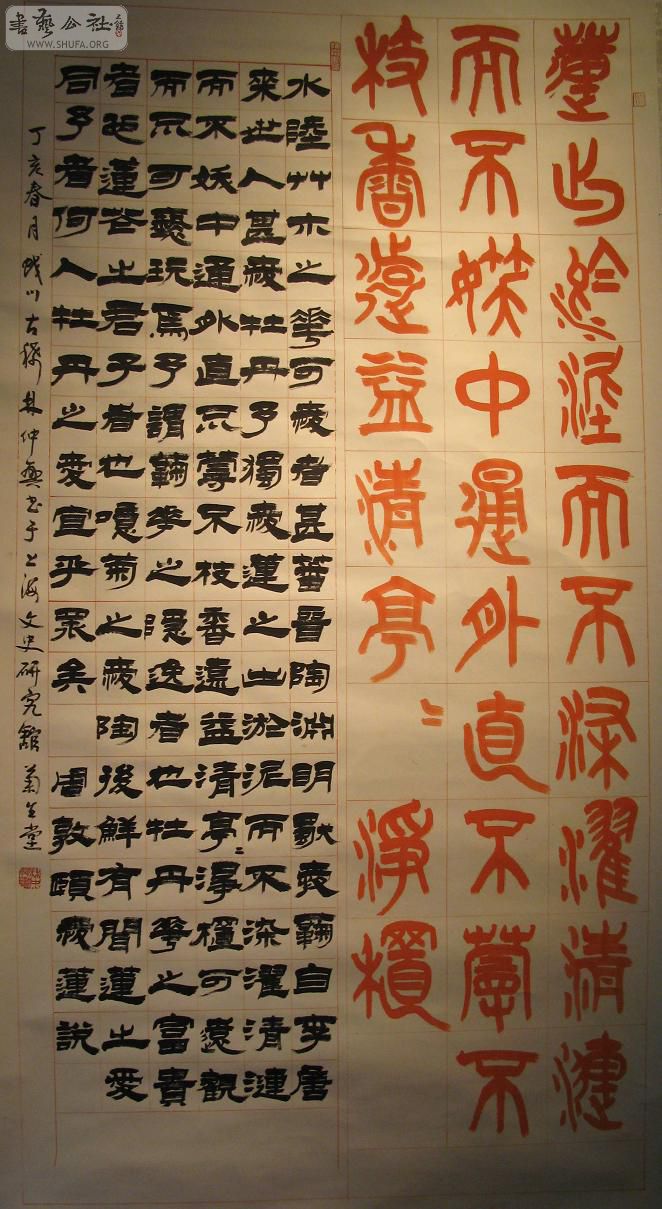 蓮出淤泥而不染濯清漣
而不妖中通外直不蔓不
枝香遠益清亭〻淨植
水陸艸木之華可愛者甚蕃晉陶淵明獨愛菊自李唐
來世人甚愛牡丹予獨愛蓮之出淤泥而不染濯清漣
而不妖中通外直不蔓不枝香遠益清亭〻淨植可遠觀
而不可褻玩焉予謂菊華之隱逸者也牡丹華之富貴
者也蓮花之君子者也噫菊之愛陶後鮮有聞蓮之愛
同予者何人牡丹之愛宜乎眾矣 周敦頤愛蓮說
丁亥春月川古稀林仲興書于上海文史研究館堂
書藝公社
WWW.SHUFA.ORG